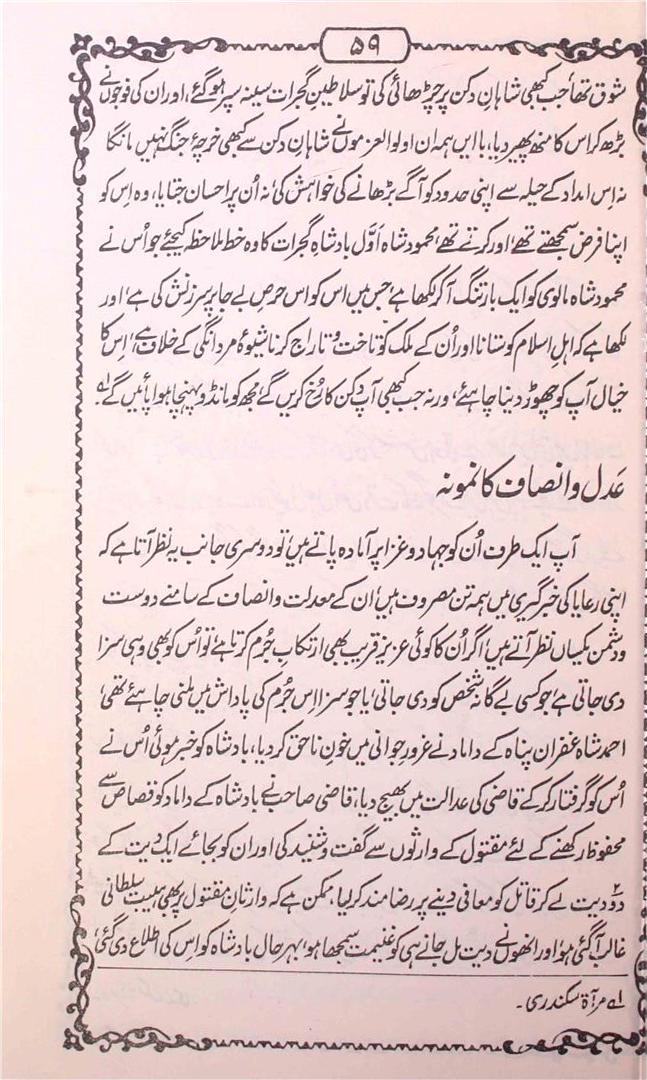 ۵۹
شوق تھا، جب کبھی شاہانِ دکن پر چڑھائی کی تو سلاطینِ گجرات سینہ سپر ہو گئے، اور ان کی فوجوں نے
بڑھ کر اس کا منھ پھیر دیا، با ایں ہمہ ان اولوالعزموں نے شاہانِ دکن سے کبھی خرچۂ جنگ نہیں مانگا
نہ اِس امداد کے حیلہ سے اپنی حدود کو آگے بڑھانے کی خواہش کی، نہ اُن پر احسان جتایا، وہ اِس کو
اپنا فرض سمجھتے تھے، اور کرتے تھے، محمود شاہ اوّل بادشاہِ گجرات کا وہ خط ملاحظہ کیجئے جو اُس نے
محمود شاہ مالوی کو ایک بار تنگ آ کر لکھا ہے، جس میں اس کو اس حرصِ بے جا پر سرزنش کی ہے، اور
لکھا ہے کہ اہلِ اسلام کو ستانا اور اُن کے ملک کو تاخت و تاراج کرنا شیوۂ مردانگی کے خلاف ہے، اِس کا
خیال آپ کو چھوڑ دینا چاہئے، ورنہ جب کبھی آپ دکن کا رُخ کریں گے مجھ کو مانڈو پہنچا ہوا پائیں گے ۱؎
عَدل و انصاف کا نمونہ
آپ ایک طرف اُن کو جہاد و غزا پر آمادہ پاتے ہیں، تو دوسری جانب یہ نظر آتا ہے کہ
اپنی رعایا کی خبرگیری میں ہمہ تن مصروف ہیں، ان کے معدلت و انصاف کے سامنے دوست
و دشمن یکساں نظر آتے ہیں، اگر اُن کا کوئی عزیز قریب بھی ارتکابِ جُرم کرتا ہے، تو اُس کو بھی وہی سزا
دی جاتی ہے، جو کسی بے گانہ شخص کو دی جاتی، یا جو سزا اِس جُرم کی پاداش میں ملنی چاہئے تھی،
احمد شاہ غفران پناہ کے داماد نے غرورِ جوانی میں خونِ ناحق کر دیا، بادشاہ کو خبر ہوئی اُس نے
اُس کو گرفتار کر کے قاضی کی عدالت میں بھیج دیا، قاضی صاحب نے بادشاہ کے داماد کو قصاص سے
محفوظ رکھنے کے لئے مقتول کے وارثوں سے گفت و شنید کی اور ان کو بجائے ایک دیت کے
دو دیت لے کر قاتل کو معافی دینے پر رضامند کر لیا، ممکن ہے کہ وارثانِ مقتول پر بھی ہیبتِ سلطانی
غالب آ گئی ہو، اور انھوں نے دیت مل جانے ہی کو غنیمت سمجھا ہو، بہر حال بادشاہ کو اس کی اطلاع دی گئی،
۱؎ مرآۃ سکندری۔